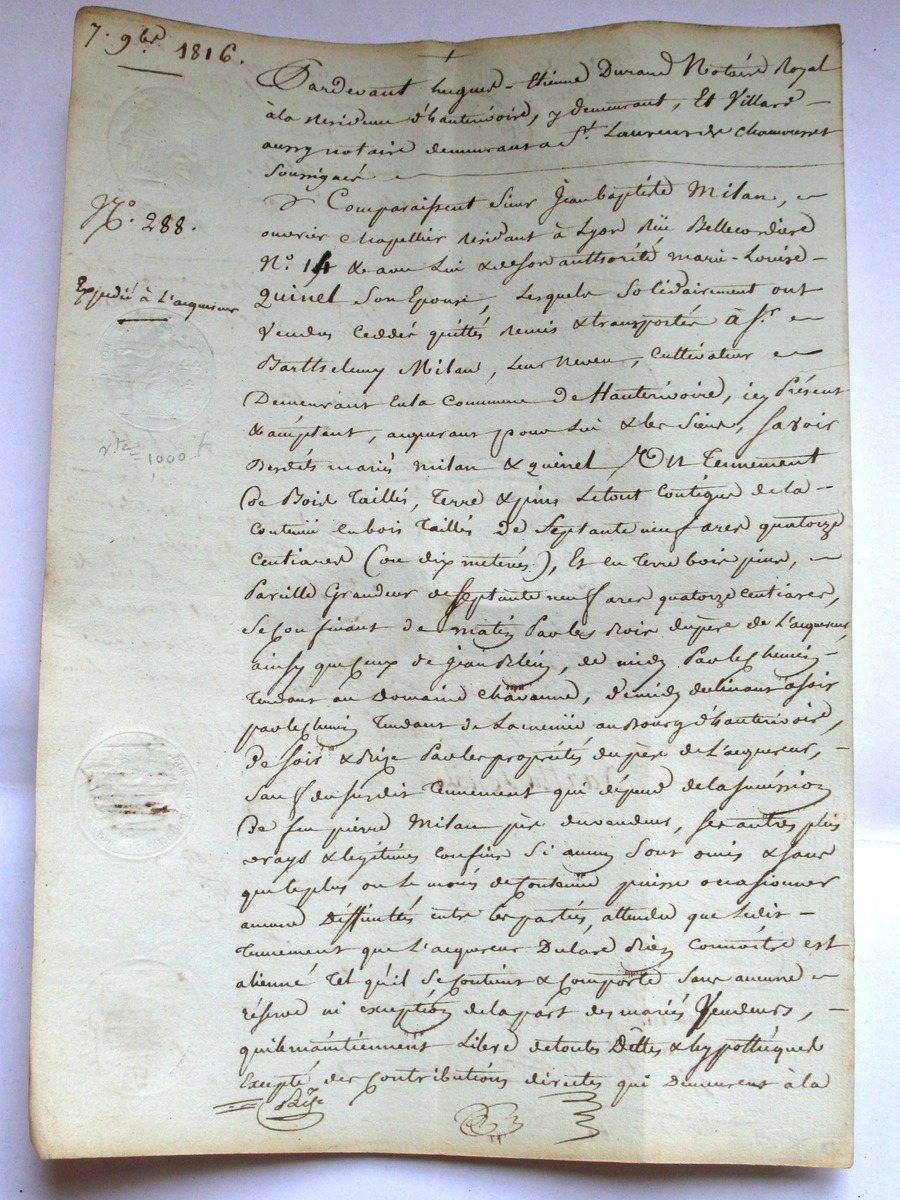 7. 9bre 1816.
Pardevant hugues-Etienne Durand Notaire Royal
à la residence d'hauterivoire, y demeurant, Et Villard
aussy notaire demeurant a St. Laurent de Chamousset
Soussignés
Comparaissent Sieur Jean baptiste Milan,
No. 288.
ouvrier chapellier residant à Lyon Rüe Bellecordiere
No. 14 & avec Lui & de son authorité marie-Louise
Expedié à L'acquereur
Quinel Son Epouse, Lesquels solidairement ont
Vendus Ceddés quittés remis & transportés à Sr.
Barthelemy Milan, Leur Neveu, Cultivateur
Demeurant En la Commune de Hauterivoire, icy Présent
& acceptant, acquerant pour Lui & les Siens, Savoir
1000 f
Desdits mariés milan & quinel, Un Tennement
de Bois Taillis, Terre & pins Le tout Contigus de la
contenue en bois Taillis de Septante neuf ares quatorze
Centiares (ou dix meterés), Et en Terre bois pins,
Pareille Grandeur de Septante neuf ares quatorze Centiares,
Se Confinant de matin Par les Bois du père de L'acquereur,
ainsy que Ceux de Jean, de midy Par le Chemin
Tendant au Domaine Chavanne, de midy declinant à Soir
par le Chemin Tendant de au Bourg d'hauterivoire,
De Soir & Bize Par les propriétés du père de L'acquereur,
Sauf du Susdit Tennement qui dépend de la Succession
De feu pierre Milan père du vendeur, Ses autres plus
vrays & legitimes confins Si aucuns Sont omis & Sans
que le plus ou Le moins de Contenüe puisse occasionner
aucune Difficultés entre les parties, attendu que Ledit
Tennement que L'acquereur Declare Bien Connoitre est
alienné Tel qu'il Se Contient & Comporte Sans aucune
réserve ni exception de la part des mariés Vendeurs,
qui le maintiennent Libre de toutes Dettes & hypothéques
Excepté des Contributions directes qui Demeurent à la